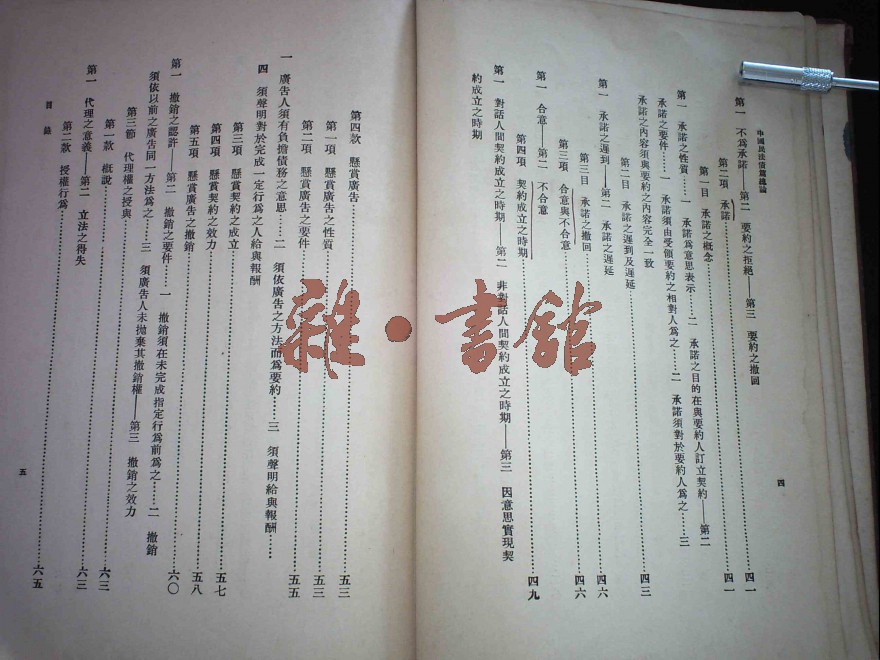 中國民法債篇總論
第一 不爲承諾——第二 要約之拒絕——第三 要約之撤回
第二項 承諾……四一
第一目 承諾之概念……四一
第一 承諾之性質……一 承諾爲意思表示……二 承諾之目的在與要約人訂立契約——第二
承諾之要件……一 承諾須由受領要約之相對人爲之……二 承諾須對於要約人爲之……三
承諾之內容須與要約之內容完全一致
第二目 承諾之遲到及遲延……四三
第一 承諾之遲到——第二 承諾之遲延
第三目 承諾之撤回……四六
第三項 合意與不合意……四六
第一 合意——第二 不合意
第四項 契約成立之時期……四九
第一 對話人間契約成立之時期——第二 非對話人間契約成立之時期——第三 因意思實現契
約成立之時期
四
第四款 懸賞廣告……五三
第一項 懸賞廣告之性質……五三
第二項 懸賞廣告之要件……五五
一 廣告人須有負擔債務之意思……二 須依廣告之方法而爲要約……三 須聲明給與報酬……
四 須聲明對於完成一定行爲之人給與報酬
第三項 懸賞契約之成立……五七
第四項 懸賞契約之效力……五八
第五項 懸賞廣告之撤銷……六〇
第一 撤銷之認許——第二 撤銷之要件……一 撤銷須在未完成指定行爲前爲之……二 撤銷
須依以前之廣告同一方法爲之……三 須廣告人未拋棄其撤銷權——第三 撤銷之效力
第三節 代理權之授與……六三
第一款 概說……六三
第一 代理之意義——第二 立法之得失
第二款 授權行爲……六五
目錄
五
雜·書館